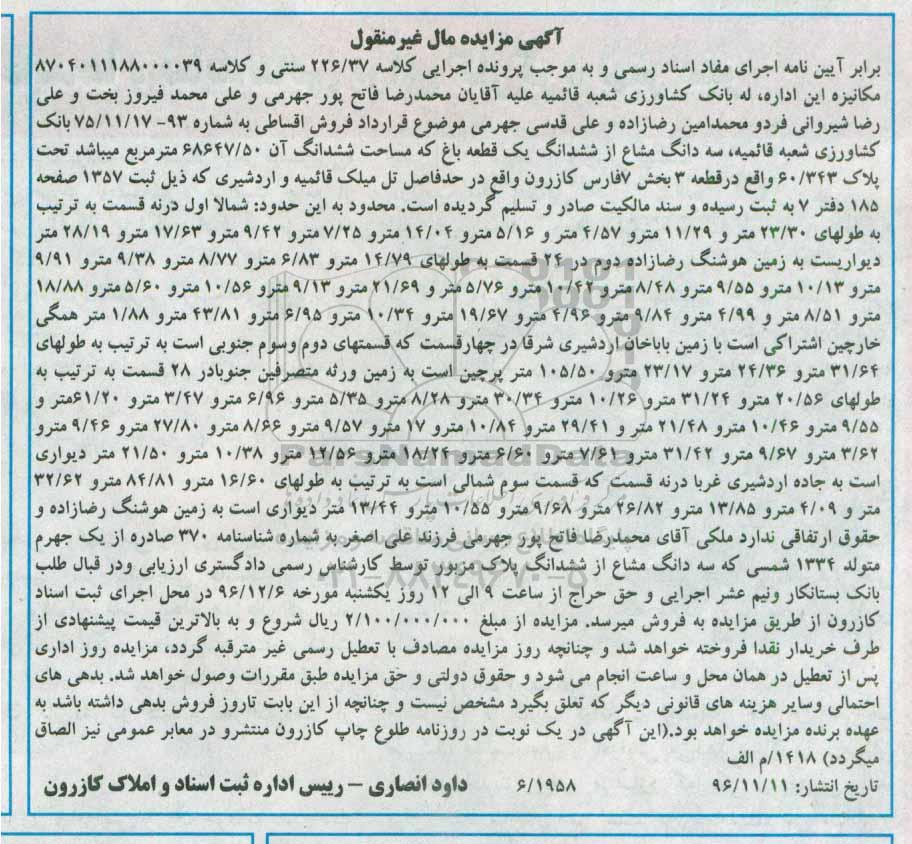 آگهی مزایده مال غیرمنقول
برابر آیین نامه اجرای مفاد اسناد رسمی و به موجب پرونده اجرایی کلاسه ۲۲۶/۳۷ سنتی و کلاسه ۸۷۰۴۰۱۱۱۸۸۰۰۰۰۳۹
مکانیزه این اداره، له بانک کشاورزی شعبه قائمیه علیه آقایان محمدرضا فاتح پور جهرمی و علی محمد فیروز بخت و علی
رضا شیروانی فردو محمدامین رضازاده و علی قدسی جهرمی موضوع قرارداد فروش اقساطی به شماره ۹۳- ۷۵/۱۱/۱۷ بانک
کشاورزی شعبه قائمیه، سه دانگ مشاع از ششدانگ یک قطعه باغ که مساحت ششدانگ آن ۶۸۶۴۷/۵۰ مترمربع میباشد تحت
پلاک ۶۰/۳۴۳ واقع درقطعه ۳ بخش ۷فارس کازرون واقع در حدفاصل تل میلک قائمیه و اردشیری که ذیل ثبت ۱۳۵۷ صفحه
۱۸۵ دفتر ۷ به ثبت رسیده و سند مالکیت صادر و تسلیم گردیده است. محدود به این حدود: شمالا اول درنه قسمت به ترتیب
به طولهای ۲۳/۳۰ متر و ۱۱/۲۹ مترو ۴/۵۷ متر و ۵/۱۶ مترو ۱۴/۰۴ مترو ۷/۲۵ مترو ۹/۴۲ مترو ۱۷/۶۳ مترو ۲۸/۱۹ متر
دیواریست به زمین هوشنگ رضازاده دوم در ۲۴ قسمت به طولهای ۱۴/۷۹ مترو ۶/۸۳ مترو ۸/۷۷ مترو ۹/۳۸ مترو ۹/۹۱
مترو ۱۰/۱۳ مترو ۹/۵۵ مترو ۸/۴۸ مترو ۱۰/۴۲ مترو ۵/۷۶ متر و ۲۱/۶۹ مترو ۹/۱۳ مترو ۱۰/۵۶ مترو ۵/۶۰ مترو ۱۸/۸۸
مترو ۸/۵۱ متر و ۴/۹۹ مترو ۹/۸۴ مترو ۴/۹۶ مترو ۱۹/۶۷ مترو ۱۰/۳۴ مترو ۶/۹۵ مترو ۴۳/۸۱ مترو ۱/۸۸ متر همگی
خارچین اشتراکی است با زمین باباخان اردشیری شرقا در چهارقسمت که قسمتهای دوم وسوم جنوبی است به ترتیب به طولهای
۳۱/۶۴ مترو ۲۴/۳۶ مترو ۲۳/۱۷ مترو ۱۰۵/۵۰ متر پرچین است به زمین ورثه متصرفین جنوبادر ۲۸ قسمت به ترتیب به
طولهای ۲۰/۵۶ مترو ۳۱/۲۴ مترو ۱۰/۲۶ مترو ۳۰/۳۴ مترو ۸/۲۸ مترو ۵/۳۵ مترو ۶/۹۶ مترو ۳/۴۷ مترو ۶۱/۲۰متر و
۹/۵۵ مترو ۱۰/۴۶ مترو ۲۱/۴۸ متر و ۲۹/۴۱ مترو ۱۰/۸۴ مترو ۱۷ مترو ۹/۵۷ مترو ۸/۶۶ مترو ۲۷/۸۰ مترو ۹/۴۶ مترو
۳/۶۲ مترو ۹/۶۷ مترو ۳۱/۴۲ مترو ۷/۶۱ مترو ۶/۶۰ مترو ۱۸/۲۴ مترو ۱۲/۵۶ مترو ۱۰/۳۸ مترو ۲۱/۵۰ متر دیواری
است به جاده اردشیری غربا درنه قسمت که قسمت سوم شمالی است به ترتیب به طولهای ۱۶/۶۰ مترو ۸۴/۸۱ مترو ۳۲/۶۲
متر و ۴/۰۹ مترو ۱۳/۸۵ مترو ۲۶/۸۲ مترو ۹/۶۸ مترو ۱۰/۵۵ مترو ۱۳/۴۴ متر دیواری است به زمین هوشنگ رضازاده و
حقوق ارتفاقی ندارد ملکی آقای محمدرضا فاتح پور جهرمی فرزند علی اصغر به شماره شناسنامه ۳۷۰ صادره از یک جهرم
متولد ۱۳۳۴ شمسی که سه دانگ مشاع از ششدانگ پلاک مزبور توسط کارشناس رسمی دادگستری ارزیابی ودر قبال طلب
بانک بستانکار ونیم عشر اجرایی و حق حراج از ساعت ۹ الی ۱۲ روز یکشنبه مورخه ۹۶/۱۲/۶ در محل اجرای ثبت اسناد
کازرون از طریق مزایده به فروش میرسد. مزایده از مبلغ ۲/۱۰۰/۰۰۰/۰۰۰ ریال شروع و به بالاترین قیمت پیشنهادی از
طرف خریدار نقدا فروخته خواهد شد و چنانچه روز مزایده مصادف با تعطیل رسمی غیر مترقبه گردد، مزایده روز اداری
پس از تعطیل در همان محل و ساعت انجام می شود و حقوق دولتی و حق مزایده طبق مقررات وصول خواهد شد. بدهی های
احتمالی وسایر هزینه های قانونی دیگر که تعلق بگیرد مشخص نیست و چنانچه از این بابت تاروز فروش بدهی داشته باشد به
عهده برنده مزایده خواهد بود.(این آگهی در یک نوبت در روزنامه طلوع چاپ کازرون منتشرو در معابر عمومی نیز الصاق
میگردد) ۱۴۱۸/م الف
تاریخ انتشار: ۹۶/۱۱/۱۱ ۶/۱۹۵۸ داود انصاری – رییس اداره ثبت اسناد و املاک کازرون
ParsNamadData
۰۲۱-۸۸۳۴۹۶۷۰-۵